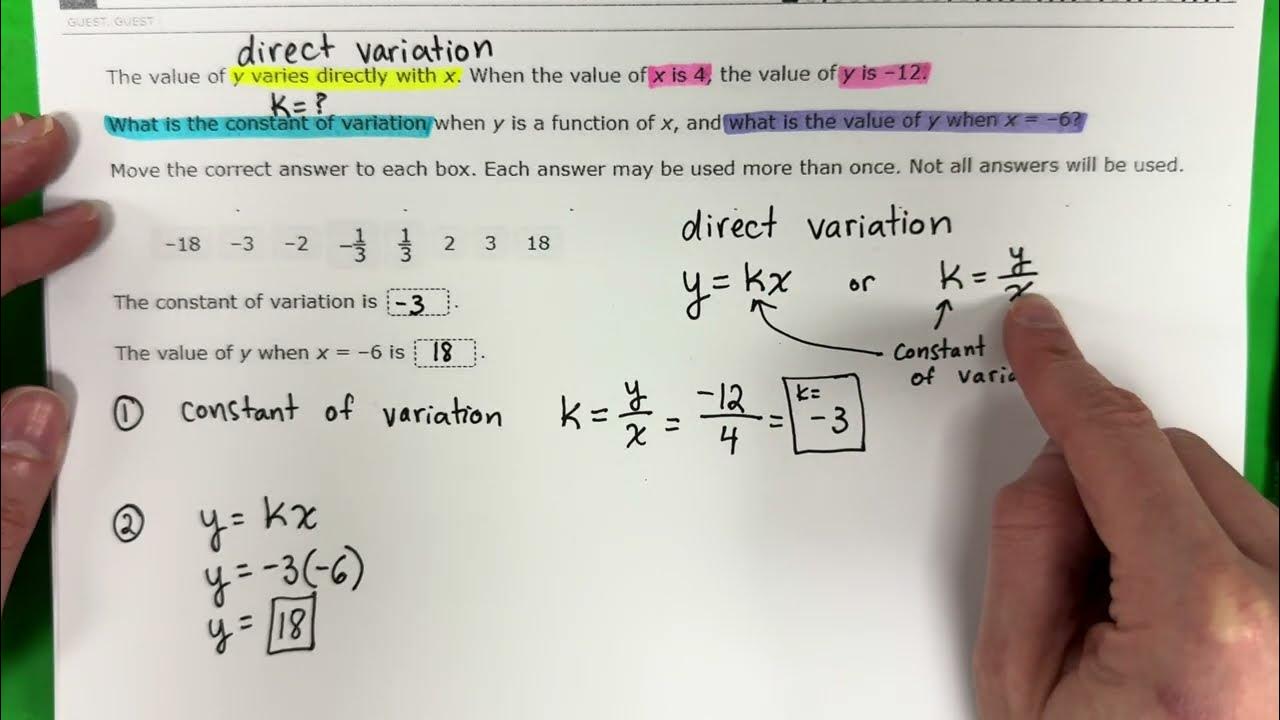 GUEST, GUEST
direct variation
The value of y varies directly with x. When the value of x is 4, the value of y is −12.
K = ?
What is the constant of variation when y is a function of x, and what is the value of y when x = −6?
Move the correct answer to each box. Each answer may be used more than once. Not all answers will be used.
−18 −3 −2 −1/3 1/3 2 3 18
direct variation
y = kx or k = y/x
The constant of variation is -3 .
The value of y when x = −6 is 18 .
constant
of
① constant of variation k = y/x = -12/4 = k= -3
② y = kx
y = -3(-6)
y = 18